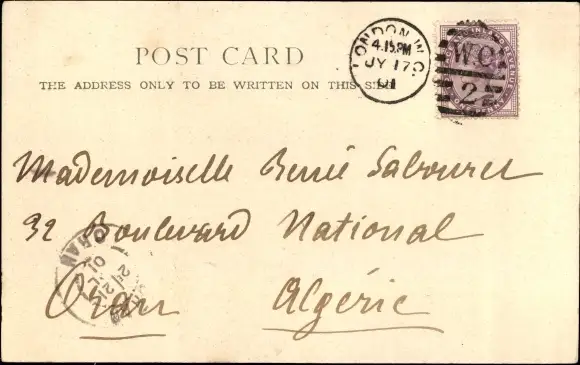 POST CARD
THE ADDRESS ONLY TO BE WRITTEN ON THIS SIDE
LONDON. W.C.
4.15.PM
JY 17
01
W.C
2
Mademoiselle Renée
32 Boulevard National
Oran Algérie
ORAN